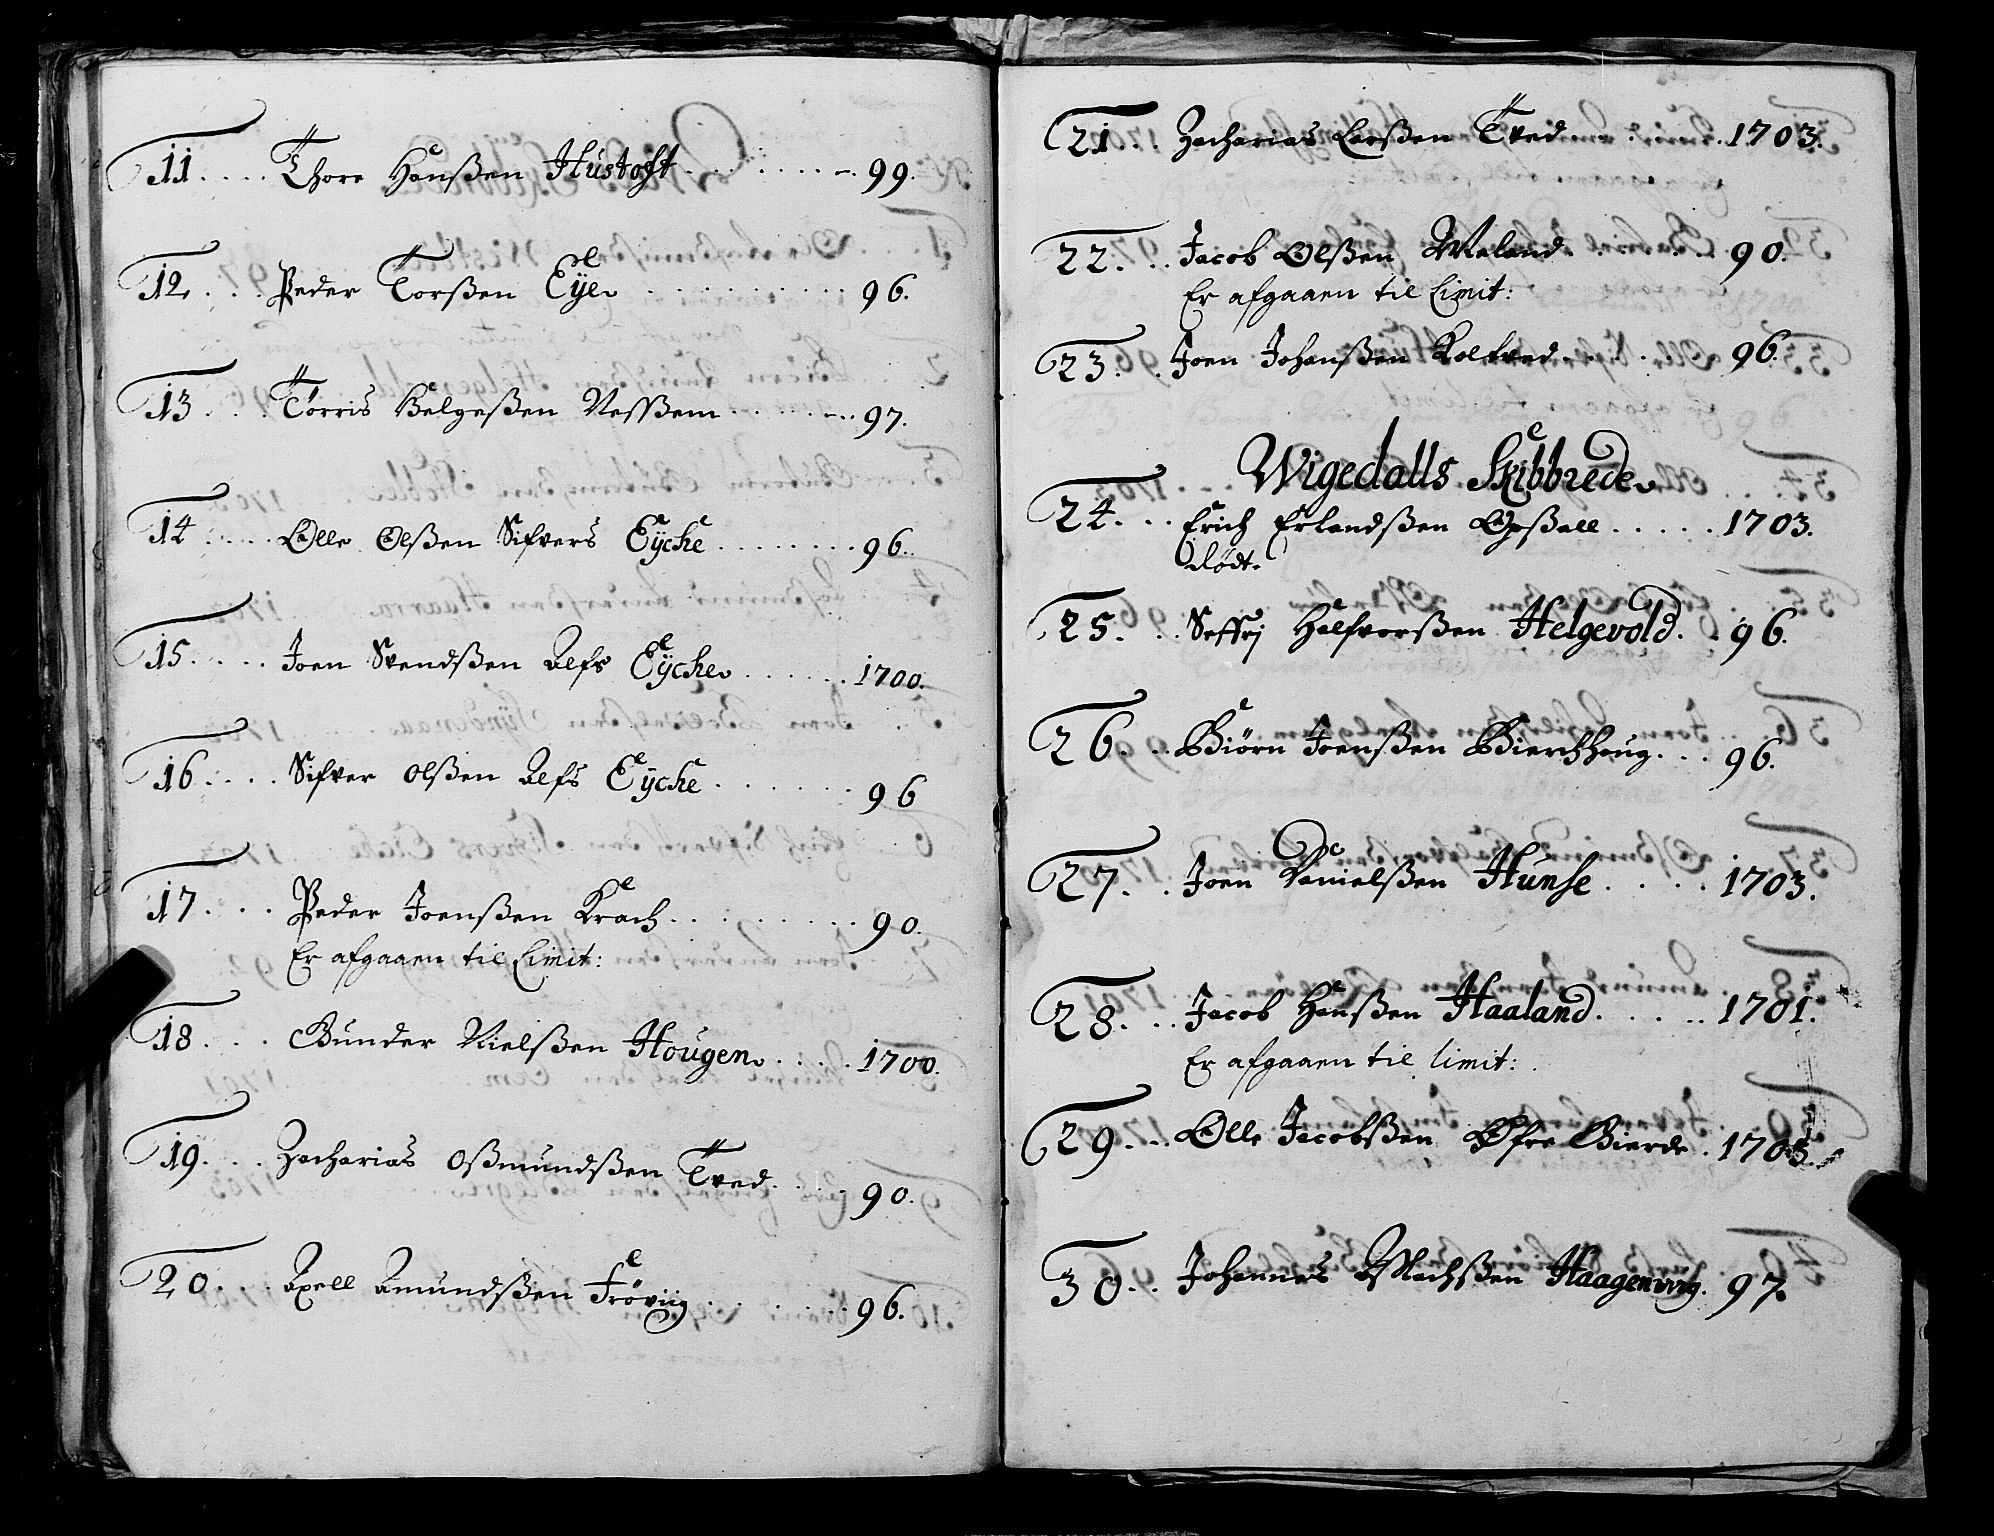 11 .... Thore Hanßen Hustoft ........ 99.
12. ... Peder Torßen Eye .......... 96.
13 ... Torris Helgeßen Nessem ....... 97.
14 .... Olle Olßen Sifvers Eyche ........ 96.
15 .... Joen Svendßen Alfs Eyche ...... 1700.
16 .... Sifver Olßen Alfs Eyche ....... 96
17 ... Peder Joenßen Krach ......... 90.
Er afgaaen til Limit:
18 ... Gunder Nielßen Hougen .... 1700.
19. ... Zacharias Oßmundßen Tved .... 90.
20 ... Axell Amundßen Frøviig ....... 96.
21 ... Zacharias Larßen Tved ....... 1703.
22. .. Jacob Olßen Meland ....... 90.
Er afgaaen til Limit:
23. . Joen Johanßen Koltved ...... 96.
Wigedalls Skibbrede
24. .. Erich Erlandßen Opßall ..... 1703.
Dödt.
25. .. Seffrj Halfvorßen Helgevold. . 96.
26. .. Biörn Joenßen Bierchhoug. .. 96.
27. .. Joen Danielßen Hunse .... 1703.
28. .. Jacob Hanßen Haaland ...... 1701.
Er afgaaen til limit:
29. .. Olle Jacobßen Øfre Bierde . 1703.
30. .. Johannes Machßen Haagenvig. 97.